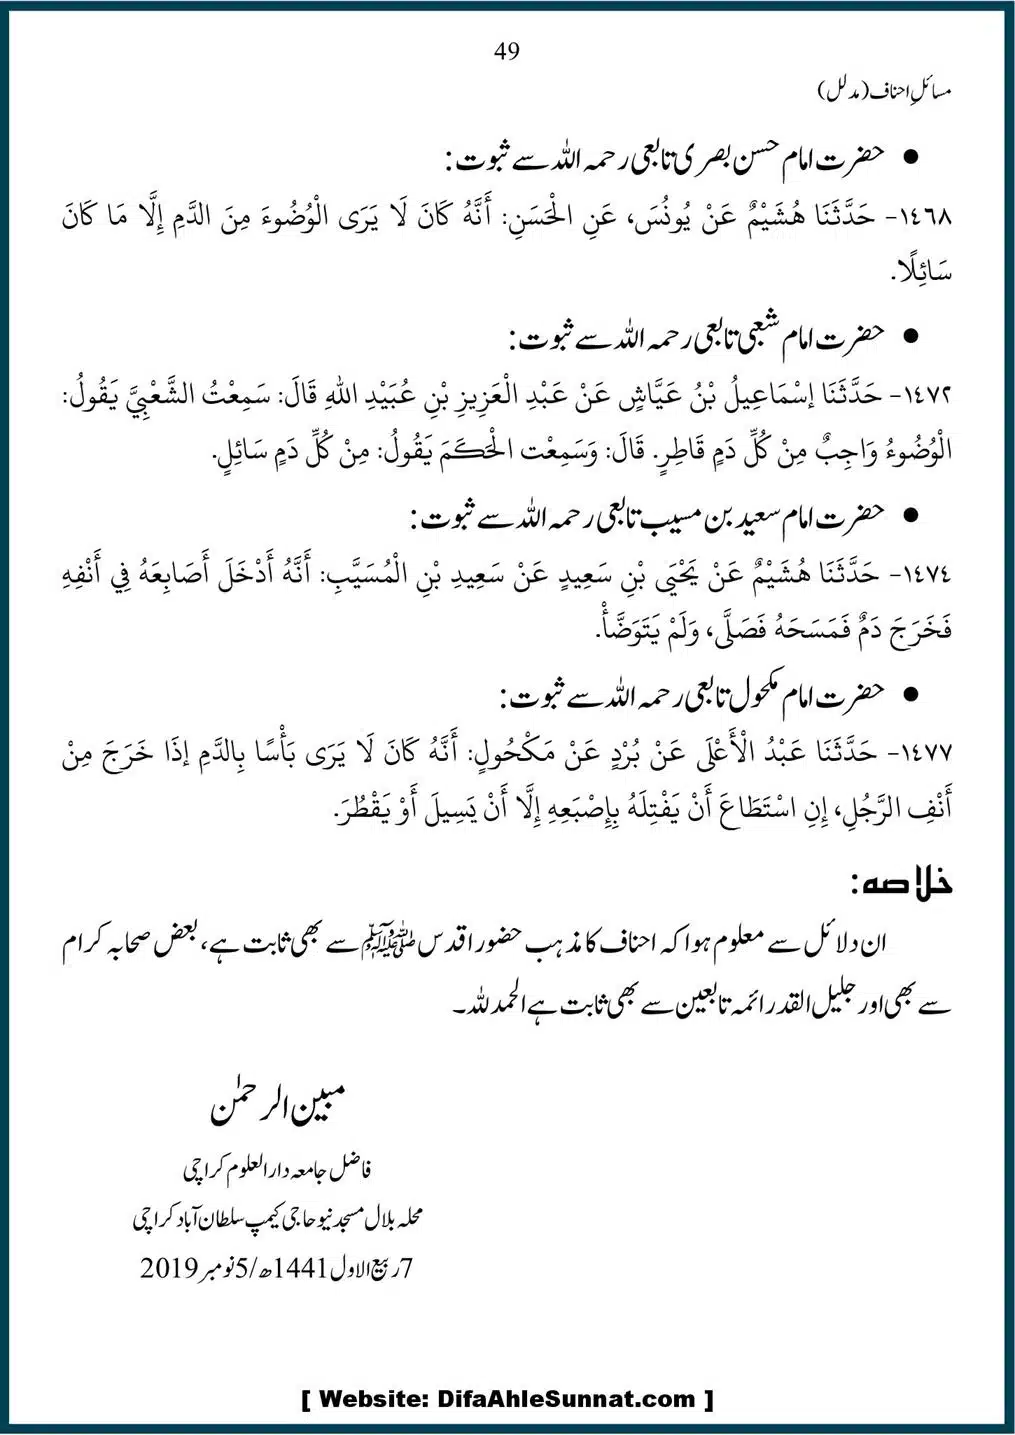 49
مسائلِ احناف (مدلل)
● حضرت امام حسن بصری تابعی رحمہ اللہ سے ثبوت:
١٤٦٨- حَدَّثَنَا هُشَيْمٌ عَنْ يُونُسَ، عَنِ الْحَسَنِ: أَنَّهُ كَانَ لَا يَرَى الْوُضُوءَ مِنَ الدَّمِ إِلَّا مَا كَانَ
سَائِلًا.
● حضرت امام شعبی تابعی رحمہ اللہ سے ثبوت:
١٤٧٢- حَدَّثَنَا إسْمَاعِيلُ بْنُ عَيَّاشٍ عَنْ عَبْدِ الْعَزِيزِ بْنِ عُبَيْدِ اللهِ قَالَ: سَمِعْتُ الشَّعْبِيَّ يَقُولُ:
الْوُضُوءُ وَاجِبٌ مِنْ كُلِّ دَمٍ قَاطِرٍ. قَالَ: وَسَمِعْت الْحَكَمَ يَقُولُ: مِنْ كُلِّ دَمٍ سَائِلٍ.
● حضرت امام سعید بن مسیب تابعی رحمہ اللہ سے ثبوت:
١٤٧٤- حَدَّثَنَا هُشَيْمٌ عَنْ يَحْيَى بْنِ سَعِيدٍ عَنْ سَعِيدِ بْنِ الْمُسَيَّبِ: أَنَّهُ أَدْخَلَ أَصَابِعَهُ فِي أَنْفِهِ
فَخَرَجَ دَمٌ فَمَسَحَهُ فَصَلَّى، وَلَمْ يَتَوَضَّأْ.
● حضرت امام مکحول تابعی رحمہ اللہ سے ثبوت:
١٤٧٧- حَدَّثَنَا عَبْدُ الْأَعْلَى عَنْ بُرْدٍ عَنْ مَكْحُولٍ: أَنَّهُ كَانَ لَا يَرَى بَأْسًا بِالدَّمِ إذَا خَرَجَ مِنْ
أَنْفِ الرَّجُلِ، إِنِ اسْتَطَاعَ أَنْ يَفْتِلَهُ بِإِصْبَعِهِ إِلَّا أَنْ يَسِيلَ أَوْ يَقْطُرَ.
خلاصہ:
ان دلائل سے معلوم ہوا کہ احناف کا مذہب حضور اقدس ﷺ سے بھی ثابت ہے، بعض صحابہ کرام
سے بھی اور جلیل القدر ائمہ تابعین سے بھی ثابت ہے الحمدللہ۔
مبین الرحمٰن
فاضل جامعہ دار العلوم کراچی
محلہ بلال مسجد نیو حاجی کیمپ سلطان آباد کراچی
7ربیع الاول 1441ھ/5نومبر 2019
[ Website: DifaAhleSunnat.com ]